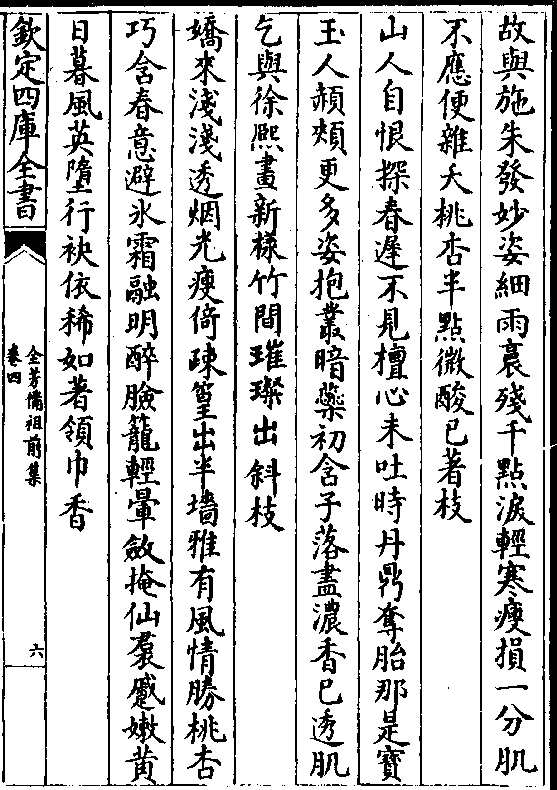 故與施朱發妙姿細雨裛殘千點淚輕寒瘦損一分肌
不應便雜夭桃杏半點微酸已著枝
山人自恨探春遲不見檀心未吐時丹鼎奪胎那是寶
玉人頳頰更多姿抱叢暗蘂初含子落盡濃香已透肌
乞與徐熙畫新樣竹間璀璨出斜枝
嬌來淺淺透烟光瘦倚疎篁出半墻雅有風情勝桃杏
巧含春意避氷霜融明醉臉籠輕暈斂掩仙裙蹙嫩黄
日暮風英墮行袂依稀如著領巾香
欽定四庫全書
全芳備祖前集
卷四
六